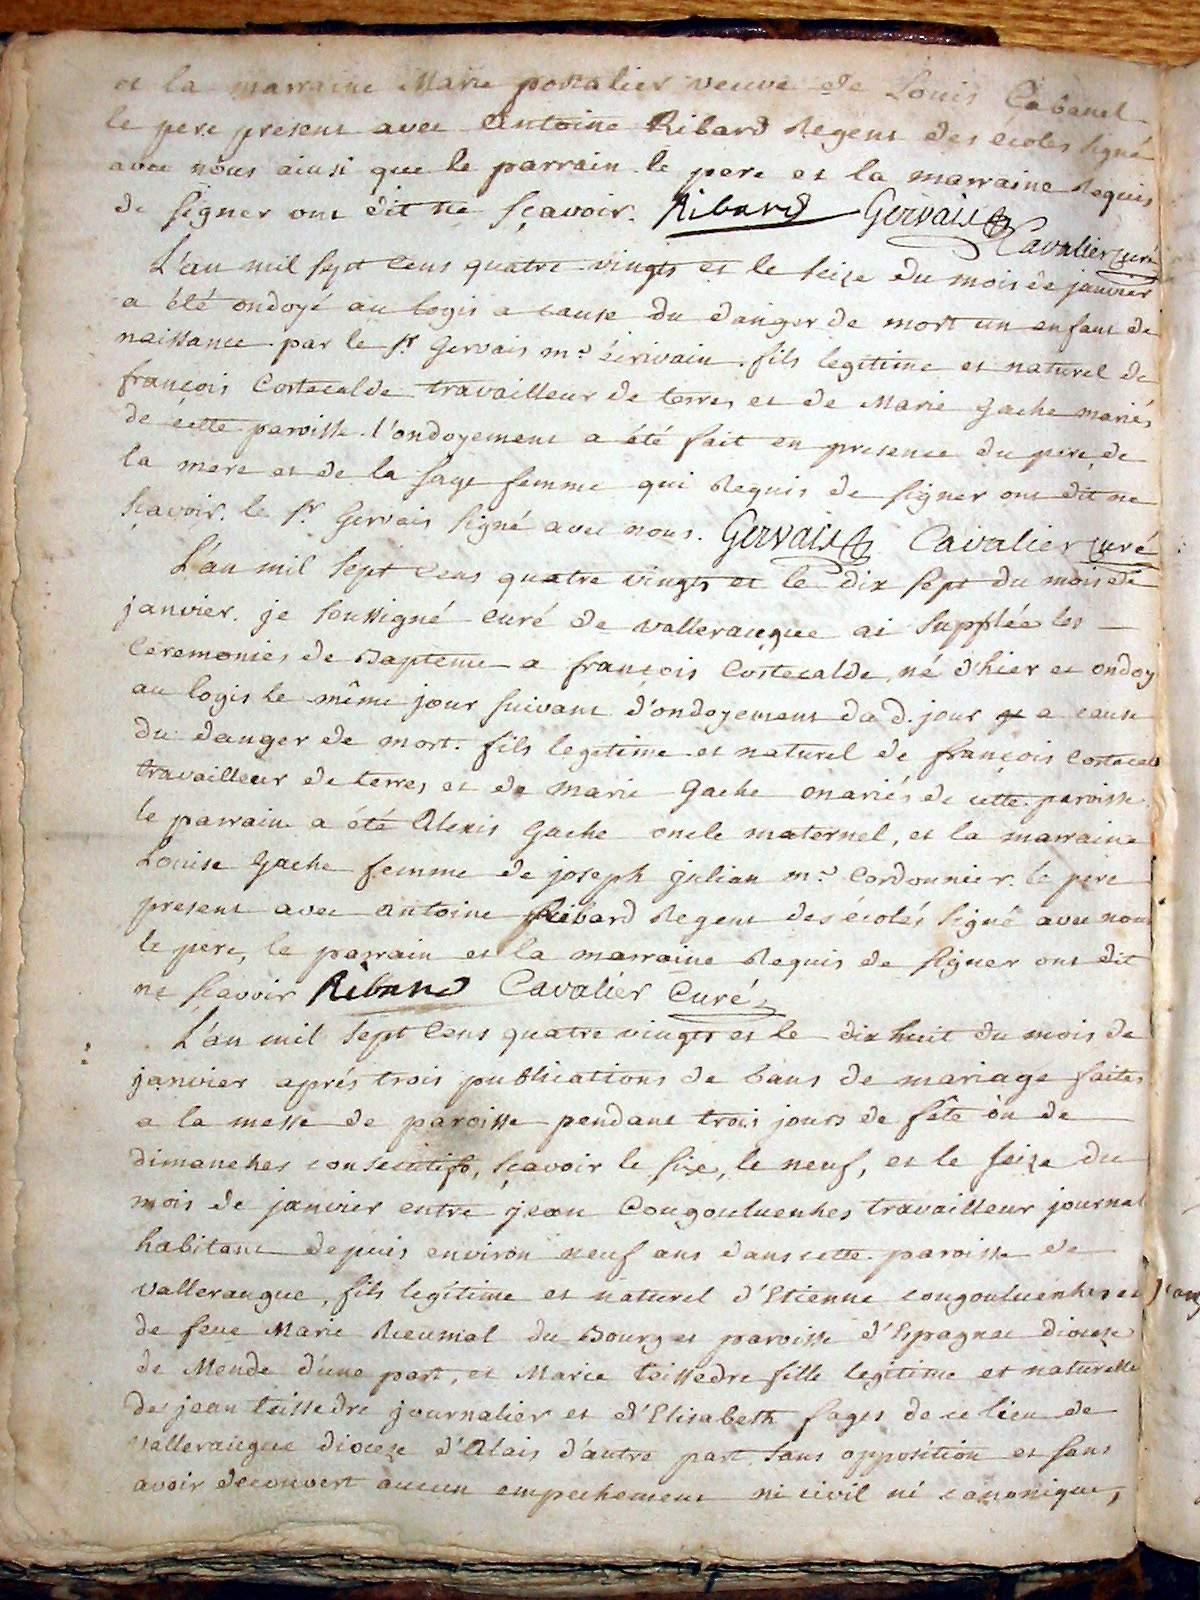 et la marraine Marie portalier veuve de Louis Cabanel
le pere present avec Antoine Ribard Regent des ecoles signé
avec nous ainsi que le parrain. le pere et la marraine Requis
de signer ont dit ne sçavoir. Ribard Gervais Cavalier curé
L'an mil sept cens quatre vingts et le seize du mois de janvier
a été ondoyé au logis a cause du danger de mort un enfant de
naissance par le sr. Gervais me. écrivain. fils legitime et naturel de
françois Costecalde travailleur de terres et de Marie Gache mariés
de cette paroisse. l'ondoyement a été fait en presence du pere, de
la mere et de la sage femme qui Requis de signer ont dit ne
sçavoir. le sr. Gervais signé avec nous. Gervais Cavalier curé
L'an mil sept cens quatre vingts et le dix sept du mois de
janvier. je soussigné curé de valleraugue ai supplée les
Ceremonies de Bapteme a françois Costecalde, né d'hier et ondoy
au logis le même jour suivant d'ondoyement du d. jour a cause
du danger de mort. fils legitime et naturel de françois costecal
travailleur de terres et de marie Gache mariés de cette paroisse.
le parrain a été Alexis Gache oncle maternel, et la marraine
Louise Gache femme de joseph julian me. Cordonnier. le pere
present avec antoine Ribard Regent des écoles signé avec nous
le pere, le parrain et la marraine Requis de signer ont dit
ne sçavoir Ribard Cavalier Curé
L'an mil sept cens quatre vingts et le dix huit du mois de
janvier aprés trois publications de bans de mariage faites
a la messe de paroisse pendant trois jours de fête òu de
dimanches consecutifs, sçavoir le six, le neuf, et le seize du
mois de janvier entre jean Cougouluenhes travailleur journal
habitant depuis environ neuf ans dans cette paroisse de
valleraugue, fils legitime et naturel d'Etienne cougouluenhes et
de feue Marie du Bourg et paroisse d'Espagnac diocese
de Mende d'une part, et Marie teissedre fille legitime et naturelle
de jean teissedre journalier et d'Elisabeth fages de ce lieu de
valleraugue diocese d'Alais d'autre part. sans opposition et sans
avoir decouvert aucun empechement ni civil ni canonique,